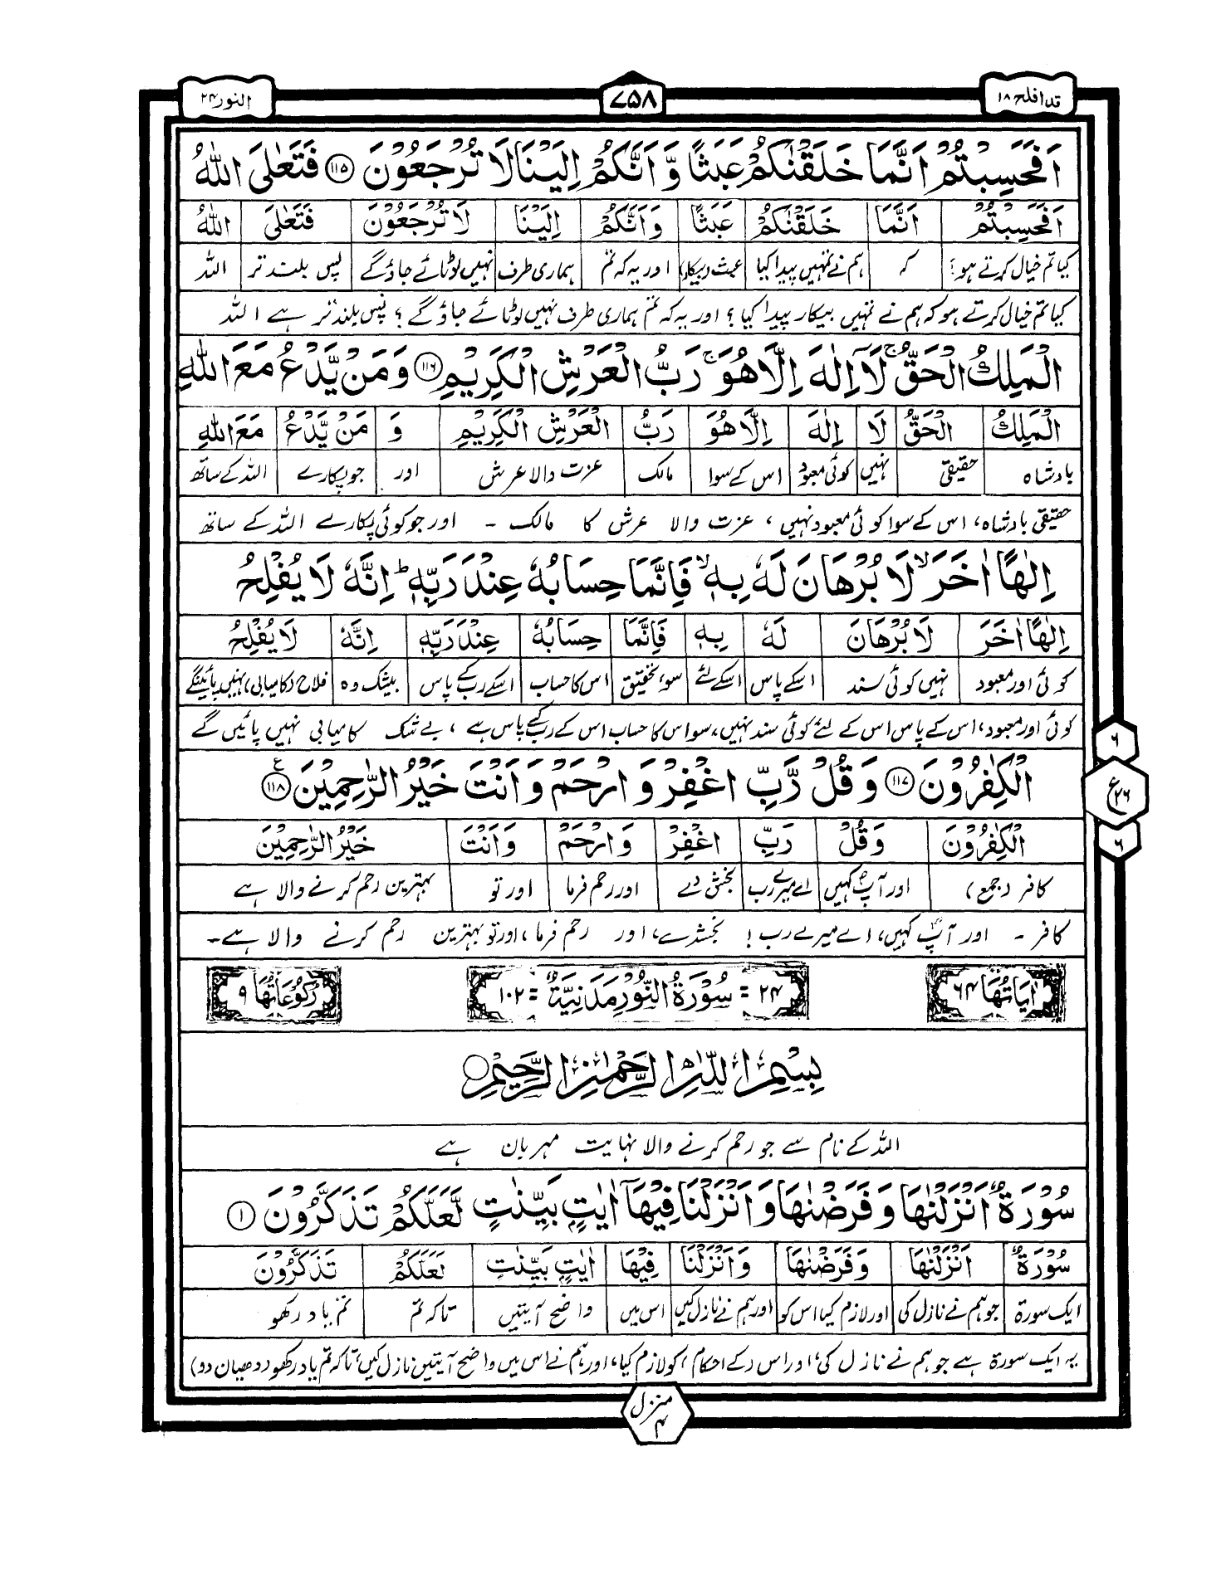 قد افلح ۱۸
۷۵۸
النور ۲۴
اَفَحَسِبْتُمْ اَنَّمَا خَلَقْنٰكُمْ عَبَثًا وَّاَنَّكُمْ اِلَيْنَا لَا تُرْجَعُوْنَ ۱۱۵ فَتَعٰلَى اللّٰهُ
اَفَحَسِبْتُمْ اَنَّمَا خَلَقْنٰكُمْ عَبَثًا وَّاَنَّكُمْ اِلَيْنَا لَا تُرْجَعُوْنَ فَتَعٰلَى اللّٰهُ
کیا تم خیال کرتے ہو؟ کہ ہم نے تمہیں پیدا کیا عبث (بیکار) اور یہ کہ تم ہماری طرف نہیں لوٹائے جاؤ گے پس بلند تر اللہ
کیا تم خیال کرتے ہو کہ ہم نے تمہیں بیکار پیدا کیا؟ اور یہ کہ تم ہماری طرف نہیں لوٹائے جاؤ گے؟ پس بلند تر ہے اللہ
الْمَلِكُ الْحَقُّ ۚ لَاۤ اِلٰهَ اِلَّا هُوَ ۚ رَبُّ الْعَرْشِ الْكَرِيْمِ ۱۱۶ وَمَنْ يَّدْعُ مَعَ اللّٰهِ
الْمَلِكُ الْحَقُّ لَا اِلٰهَ اِلَّا هُوَ رَبُّ الْعَرْشِ الْكَرِيْمِ وَ مَنْ يَّدْعُ مَعَ اللّٰهِ
بادشاہ حقیقی نہیں کوئی معبود اس کے سوا مالک عزت والا عرش اور جو پکارے اللہ کے ساتھ
حقیقی بادشاہ، اس کے سوا کوئی معبود نہیں، عزت والا عرش کا مالک ۔ اور جو کوئی پکارے اللہ کے ساتھ
اِلٰهًا اٰخَرَ ۙ لَا بُرْهَانَ لَهٗ بِهٖ ۙ فَاِنَّمَا حِسَابُهٗ عِنْدَ رَبِّهٖ ؕ اِنَّهٗ لَا يُفْلِحُ
اِلٰهًا اٰخَرَ لَا بُرْهَانَ لَهٗ بِهٖ فَاِنَّمَا حِسَابُهٗ عِنْدَ رَبِّهٖ اِنَّهٗ لَا يُفْلِحُ
کوئی اور معبود نہیں کوئی سند اسکے پاس اسکے لئے سو، تحقیق اس کا حساب اسکے رب کے پاس بیشک وہ فلاح (کامیابی) نہیں پائینگے
کوئی اور معبود، اس کے پاس اس کے لئے کوئی سند نہیں، سو اس کا حساب اس کے رب کے پاس ہے، بے شک کامیابی نہیں پائیں گے
الْكٰفِرُوْنَ ۱۱۷ وَقُلْ رَّبِّ اغْفِرْ وَارْحَمْ وَاَنْتَ خَيْرُ الرّٰحِمِيْنَ ۱۱۸ ع
الْكٰفِرُوْنَ وَقُلْ رَبِّ اغْفِرْ وَارْحَمْ وَاَنْتَ خَيْرُ الرّٰحِمِيْنَ
کافر (جمع) اور آپ کہیں اے میرے رب بخش دے اور رحم فرما اور تو بہترین رحم کرنے والا ہے
کافر ۔ اور آپ کہیں، اے میرے رب! بخشدے، اور رحم فرما، اور تو بہترین رحم کرنے والا ہے۔
۶
ع ۲۶
۶
اٰيَاتُهَا ۶۴
۲۴ = سُوْرَةُ النُّوْرِ مَدَنِيَّةٌ = ۱۰۲
رُكُوْعَاتُهَا ۹
بِسْمِ اللّٰهِ الرَّحْمٰنِ الرَّحِيْمِ
اللہ کے نام سے جو رحم کرنے والا نہایت مہربان ہے
سُوْرَةٌ اَنْزَلْنٰهَا وَفَرَضْنٰهَا وَاَنْزَلْنَا فِيْهَاۤ اٰيٰتٍۭ بَيِّنٰتٍ لَّعَلَّكُمْ تَذَكَّرُوْنَ ۱
سُوْرَةٌ اَنْزَلْنٰهَا وَفَرَضْنٰهَا وَاَنْزَلْنَا فِيْهَا اٰيٰتٍۭ بَيِّنٰتٍ لَعَلَّكُمْ تَذَكَّرُوْنَ
ایک سورۃ جو ہم نے نازل کی اور لازم کیا اس کو اور ہم نے نازل کیں اس میں واضح آیتیں تاکہ تم تم یاد رکھو
یہ ایک سورۃ ہے جو ہم نے نازل کی، اور اس (کے احکام) کو لازم کیا، اور ہم نے اس میں واضح آیتیں نازل کیں تاکہ تم یاد رکھو (دھیان دو)
منزل ۴